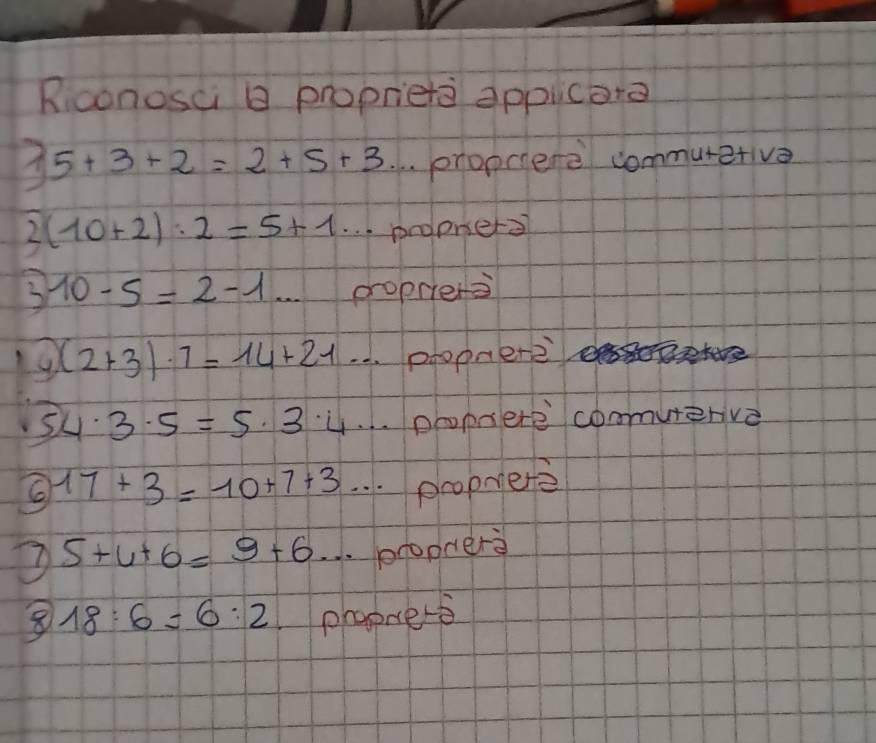 Riconosci la proprietà applicata
1) 5+3+2 = 2+5+3... proprietà commutativa
2) (10+2):2 = 5+1... proprietà
3) 10-5 = 2-1... proprietà
4) (2+3)·7 = 14+21... proprietà
5) 4·3·5 = 5·3·4... proprietà commutativa
6) 17+3 = 10+7+3... proprietà
7) 5+4+6 = 9+6... proprietà
8) 18:6 = 6:2. proprietà